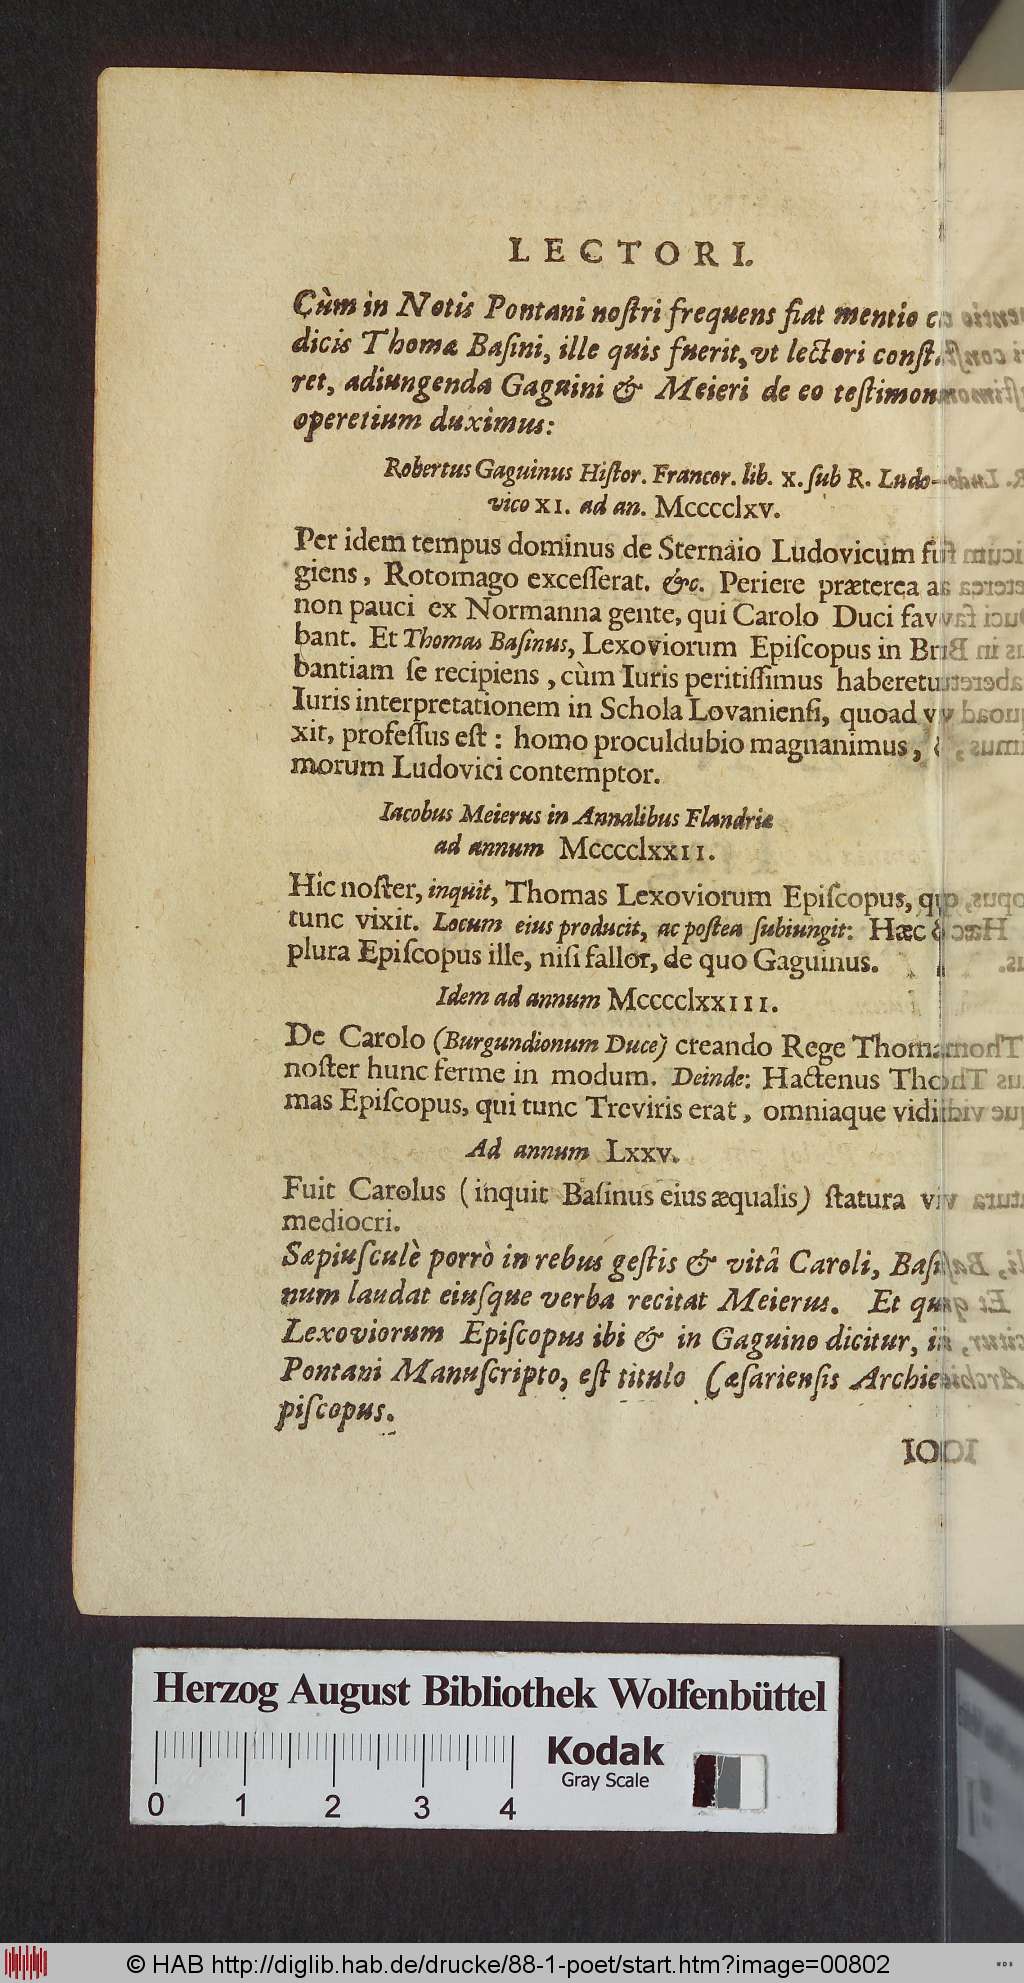 LECTORI.
Cùm in Notis Pontani noſtri frequens fiat mentio
dicis Thomæ Baſini, ille quis fuerit, vt lectori conſt
ret, adiungenda Gaguini & Meieri de eo teſtimon
operetium duximus:
Robertus Gaguinus Hiſtor. Francor. lib. X. ſub R. Ludo-
vico XI. ad an. Mcccclxv.
Per idem tempus dominus de Sternaio Ludovicum fu
giens, Rotomago exceſſerat. &c. Periere præterea
non pauci ex Normanna gente, qui Carolo Duci fav
bant. Et Thomas Baſinus, Lexoviorum Epiſcopus in Br
bantiam ſe recipiens, cùm Iuris peritiſſimus haberetu
Iuris interpretationem in Schola Lovanienſi, quoad v
xit, profeſſus eſt: homo proculdubio magnanimus,
morum Ludovici contemptor.
Iacobus Meierus in Annalibus Flandriæ
ad annum MccccclxxII.
Hic noſter, inquit, Thomas Lexoviorum Epiſcopus, qu
tunc vixit. Locum eius producit, ac poſtea ſubiungit: Hæc
plura Epiſcopus ille, niſi fallor, de quo Gaguinus.
Idem ad annum MccccclxxIII.
De Carolo (Burgundionum Duce) creando Rege Thomas
noſter hunc ferme in modum. Deinde: Hactenus Tho
mas Epiſcopus, qui tunc Treviris erat, omniaque vidit
Ad annum Lxxv.
Fuit Carolus (inquit Baſinus eius æqualis) ſtatura
mediocri.
Sæpiuſculè porrò in rebus geſtis & vitâ Caroli, Baſi
num laudat eiuſque verba recitat Meierus. Et qui
Lexoviorum Epiſcopus ibi & in Gaguino dicitur, in
Pontani Manuſcripto, eſt titulo Cæſarienſis Archie
piſcopus.
Herzog August Bibliothek Wolfenbüttel
Kodak
Gray Scale
0 1 2 3 4
© HAB http://diglib.hab.de/drucke/88-1-poet/start.htm?image=00802